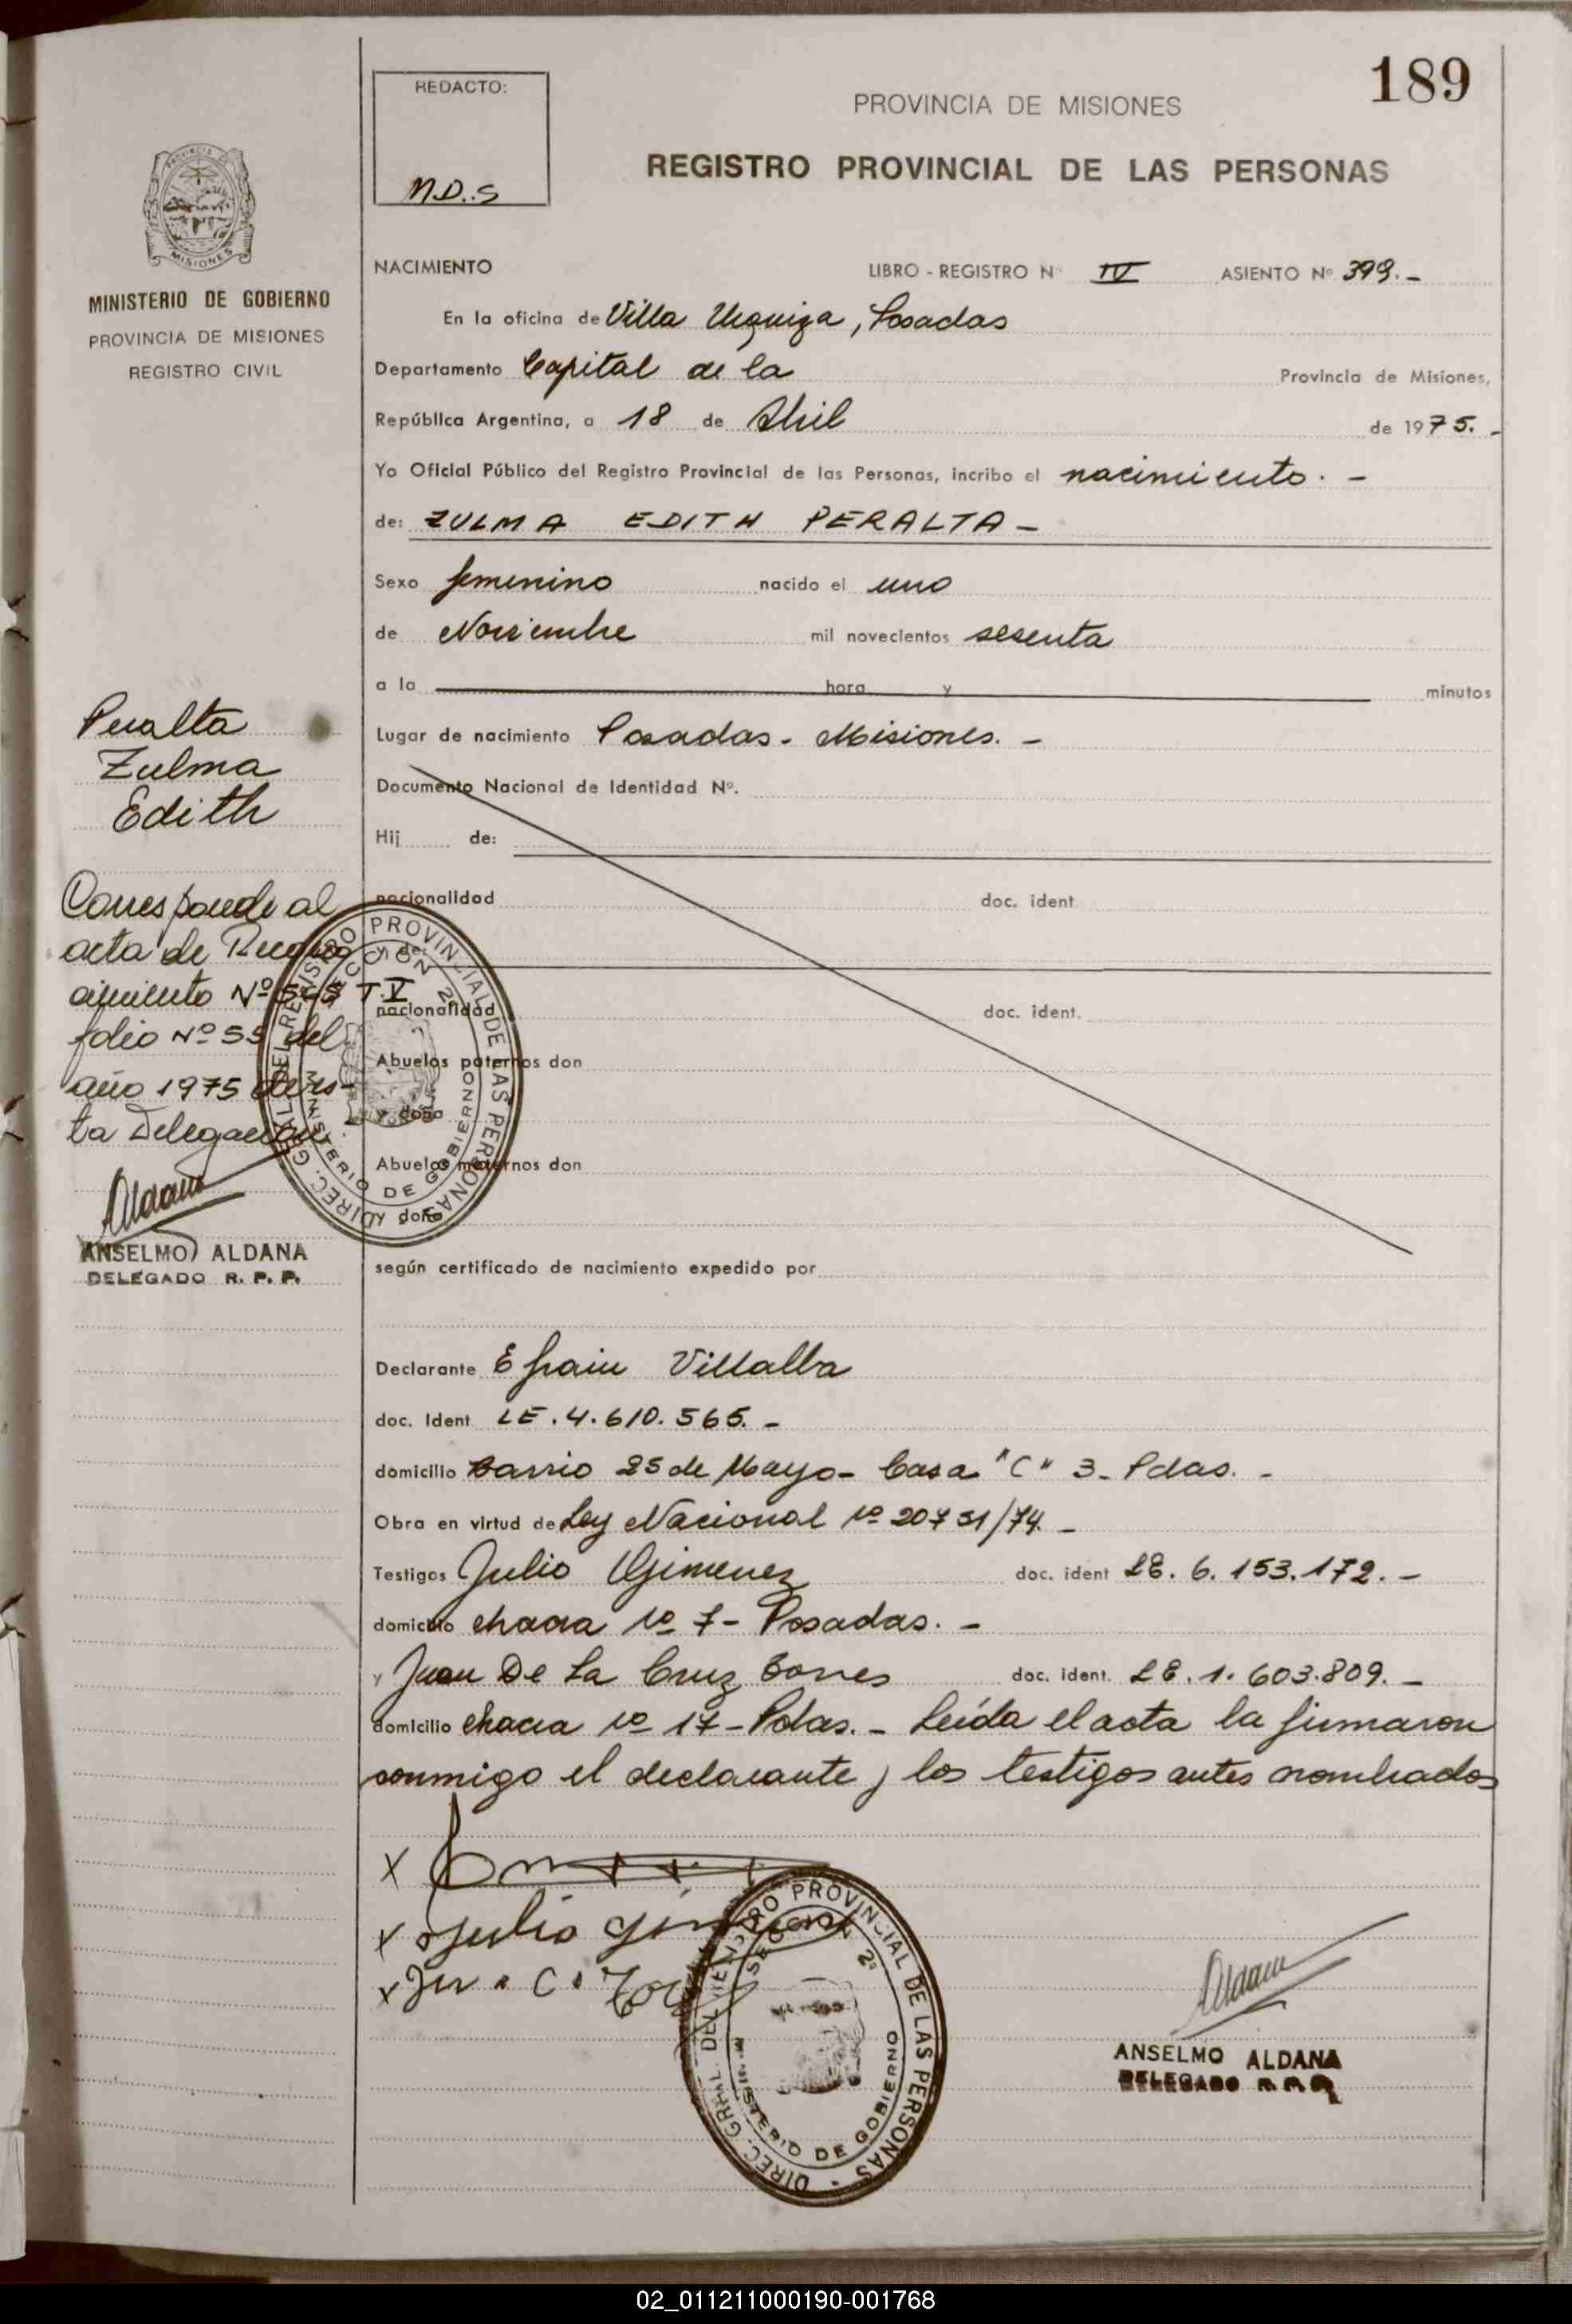 189
REDACTO:
M.D.S
PROVINCIA DE MISIONES
REGISTRO PROVINCIAL DE LAS PERSONAS
PROVINCIA DE
MISIONES
MINISTERIO DE GOBIERNO
PROVINCIA DE MISIONES
REGISTRO CIVIL
NACIMIENTO LIBRO - REGISTRO Nº IV ASIENTO Nº 399.-
En la oficina de Villa Urquiza, Posadas
Departamento Capital de la Provincia de Misiones,
República Argentina, a 18 de Abril de 1975.-
Yo Oficial Público del Registro Provincial de las Personas, incribo el nacimiento.-
de: ZULMA EDITH PERALTA-
Sexo femenino nacido el uno
de Noviembre mil novecientos sesenta
a la hora y minutos
Lugar de nacimiento Posadas - Misiones.-
Documento Nacional de Identidad Nº.
Hij de:
nacionalidad doc. ident
y de:
nacionalidad doc. ident.
Abuelos paternos don
y doña
Abuelos maternos don
y doña
según certificado de nacimiento expedido por
Peralta
Zulma
Edith
Corresponde al
acta de Recono
cimiento Nº T.V
folio Nº 55 del
año 1975 de es-
ta Delegación.
Aldana
ANSELMO ALDANA
DELEGADO R. P. P.
DIREC. GRAL. DEL REGISTRO PROVINCIAL DE LAS PERSONAS
SECCION 2ª
MINISTERIO DE GOBIERNO
Declarante Efrain Villalba
doc. Ident LE.4.610.565.-
domicilio Barrio 25 de Mayo- Casa "C" 3- Pdas.-
Obra en virtud de Ley Nacional Nº 20751/74.-
Testigos Julio Gimenez doc. ident LE. 6.153.172.-
domicilio chacra Nº 7- Posadas.-
y Juan De La Cruz Torres doc. ident. LE.1.603.809.-
domicilio chacra Nº 17-Pdas.- Leída el acta la firmaron
conmigo el declarante y los testigos antes nombrados
X
X Julio Gimenez
X Ju. C.
DIREC. GRAL. DEL REGISTRO PROVINCIAL DE LAS PERSONAS
SECCION 2ª
MINISTERIO DE GOBIERNO
Aldana
ANSELMO ALDANA
DELEGADO R. P. P.
02_011211000190-001768